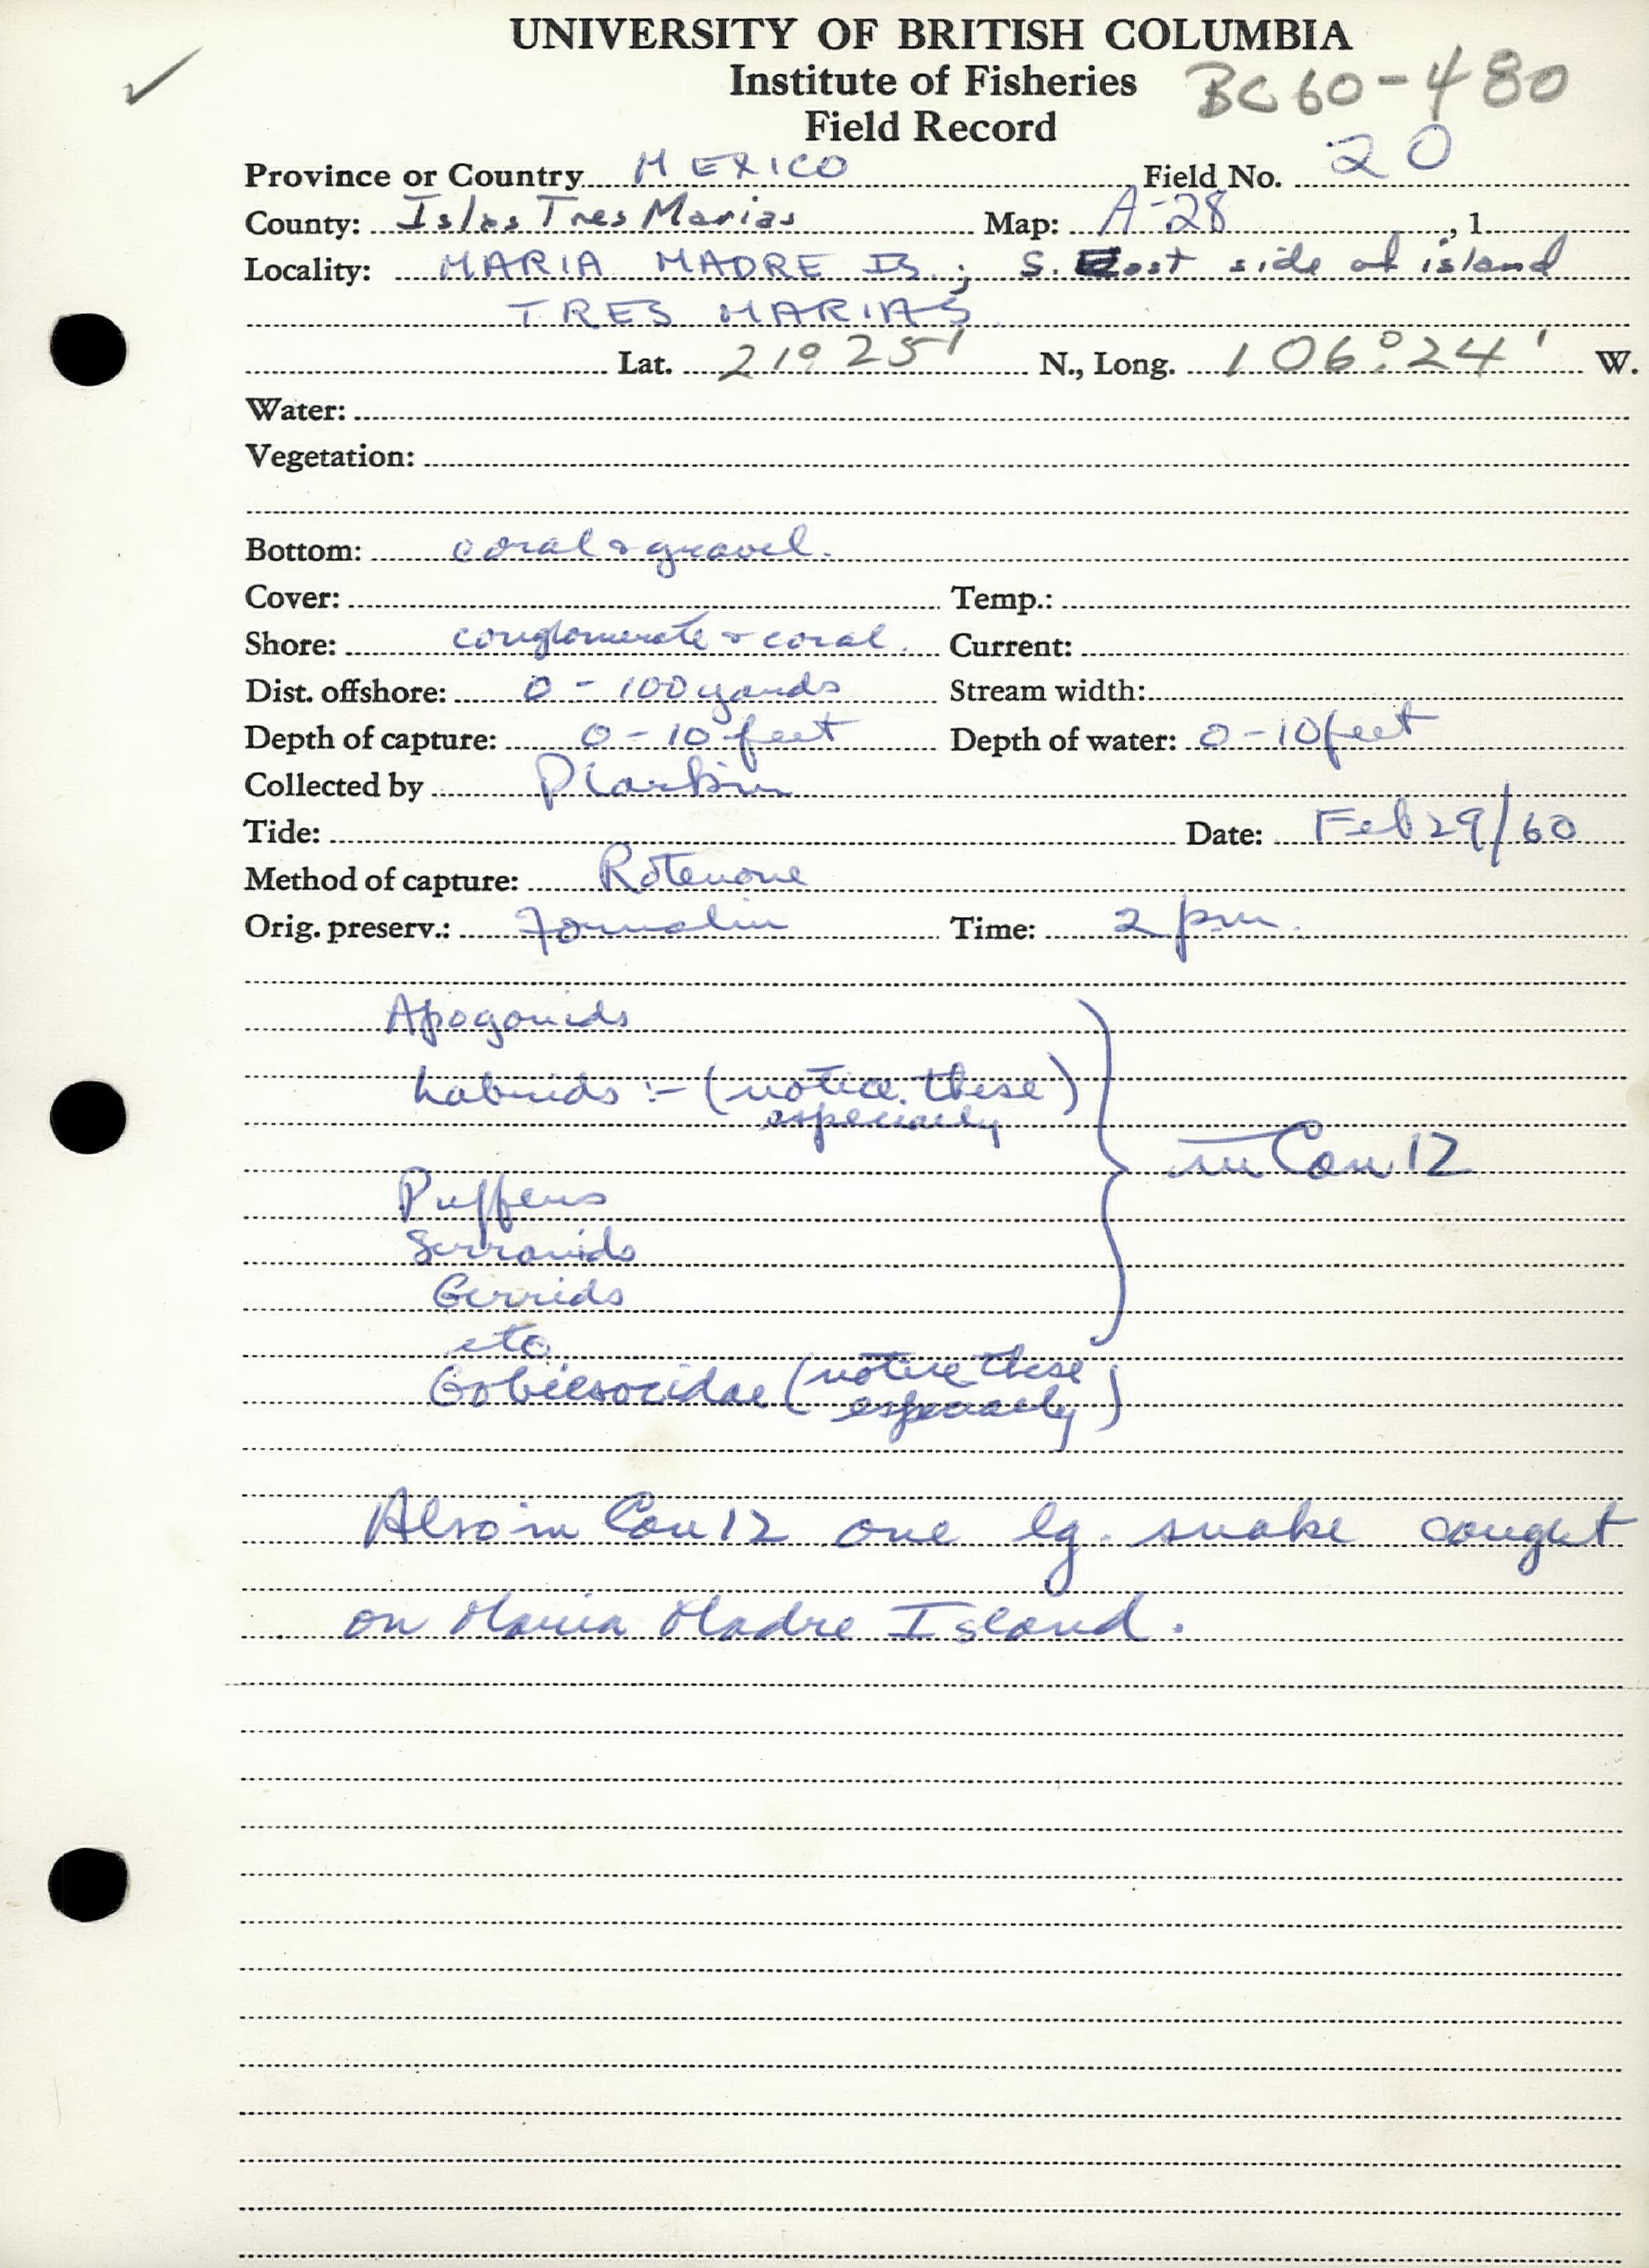 UNIVERSITY OF BRITISH COLUMBIA
Institute of Fisheries
BC 60-480
Field Record
Province or Country MEXICO Field No. 20
County: Islas Tres Marias Map: A-28 , 1
Locality: MARIA MADRE IS.; S. East side of island
TRES MARIAS
Lat. 21° 25' N., Long. 106° 24' W.
Water:
Vegetation:
Bottom: coral & gravel.
Cover: Temp.:
Shore: conglomerate & coral. Current:
Dist. offshore: 0-100 yards Stream width:
Depth of capture: 0-10 feet Depth of water: 0-10 feet
Collected by P Larkin
Tide: Date: Feb 29/60
Method of capture: Rotenone
Orig. preserv.: Formalin Time: 2 pm.
Apogonids
Labrids :- (notice these)
especially
in Can 12
Puffers
Serranids
Gerrids
etc
Gobiesocidae (notice these
especially)
Also in Can 12 one lg. snake caught
on Maria Madre Island.